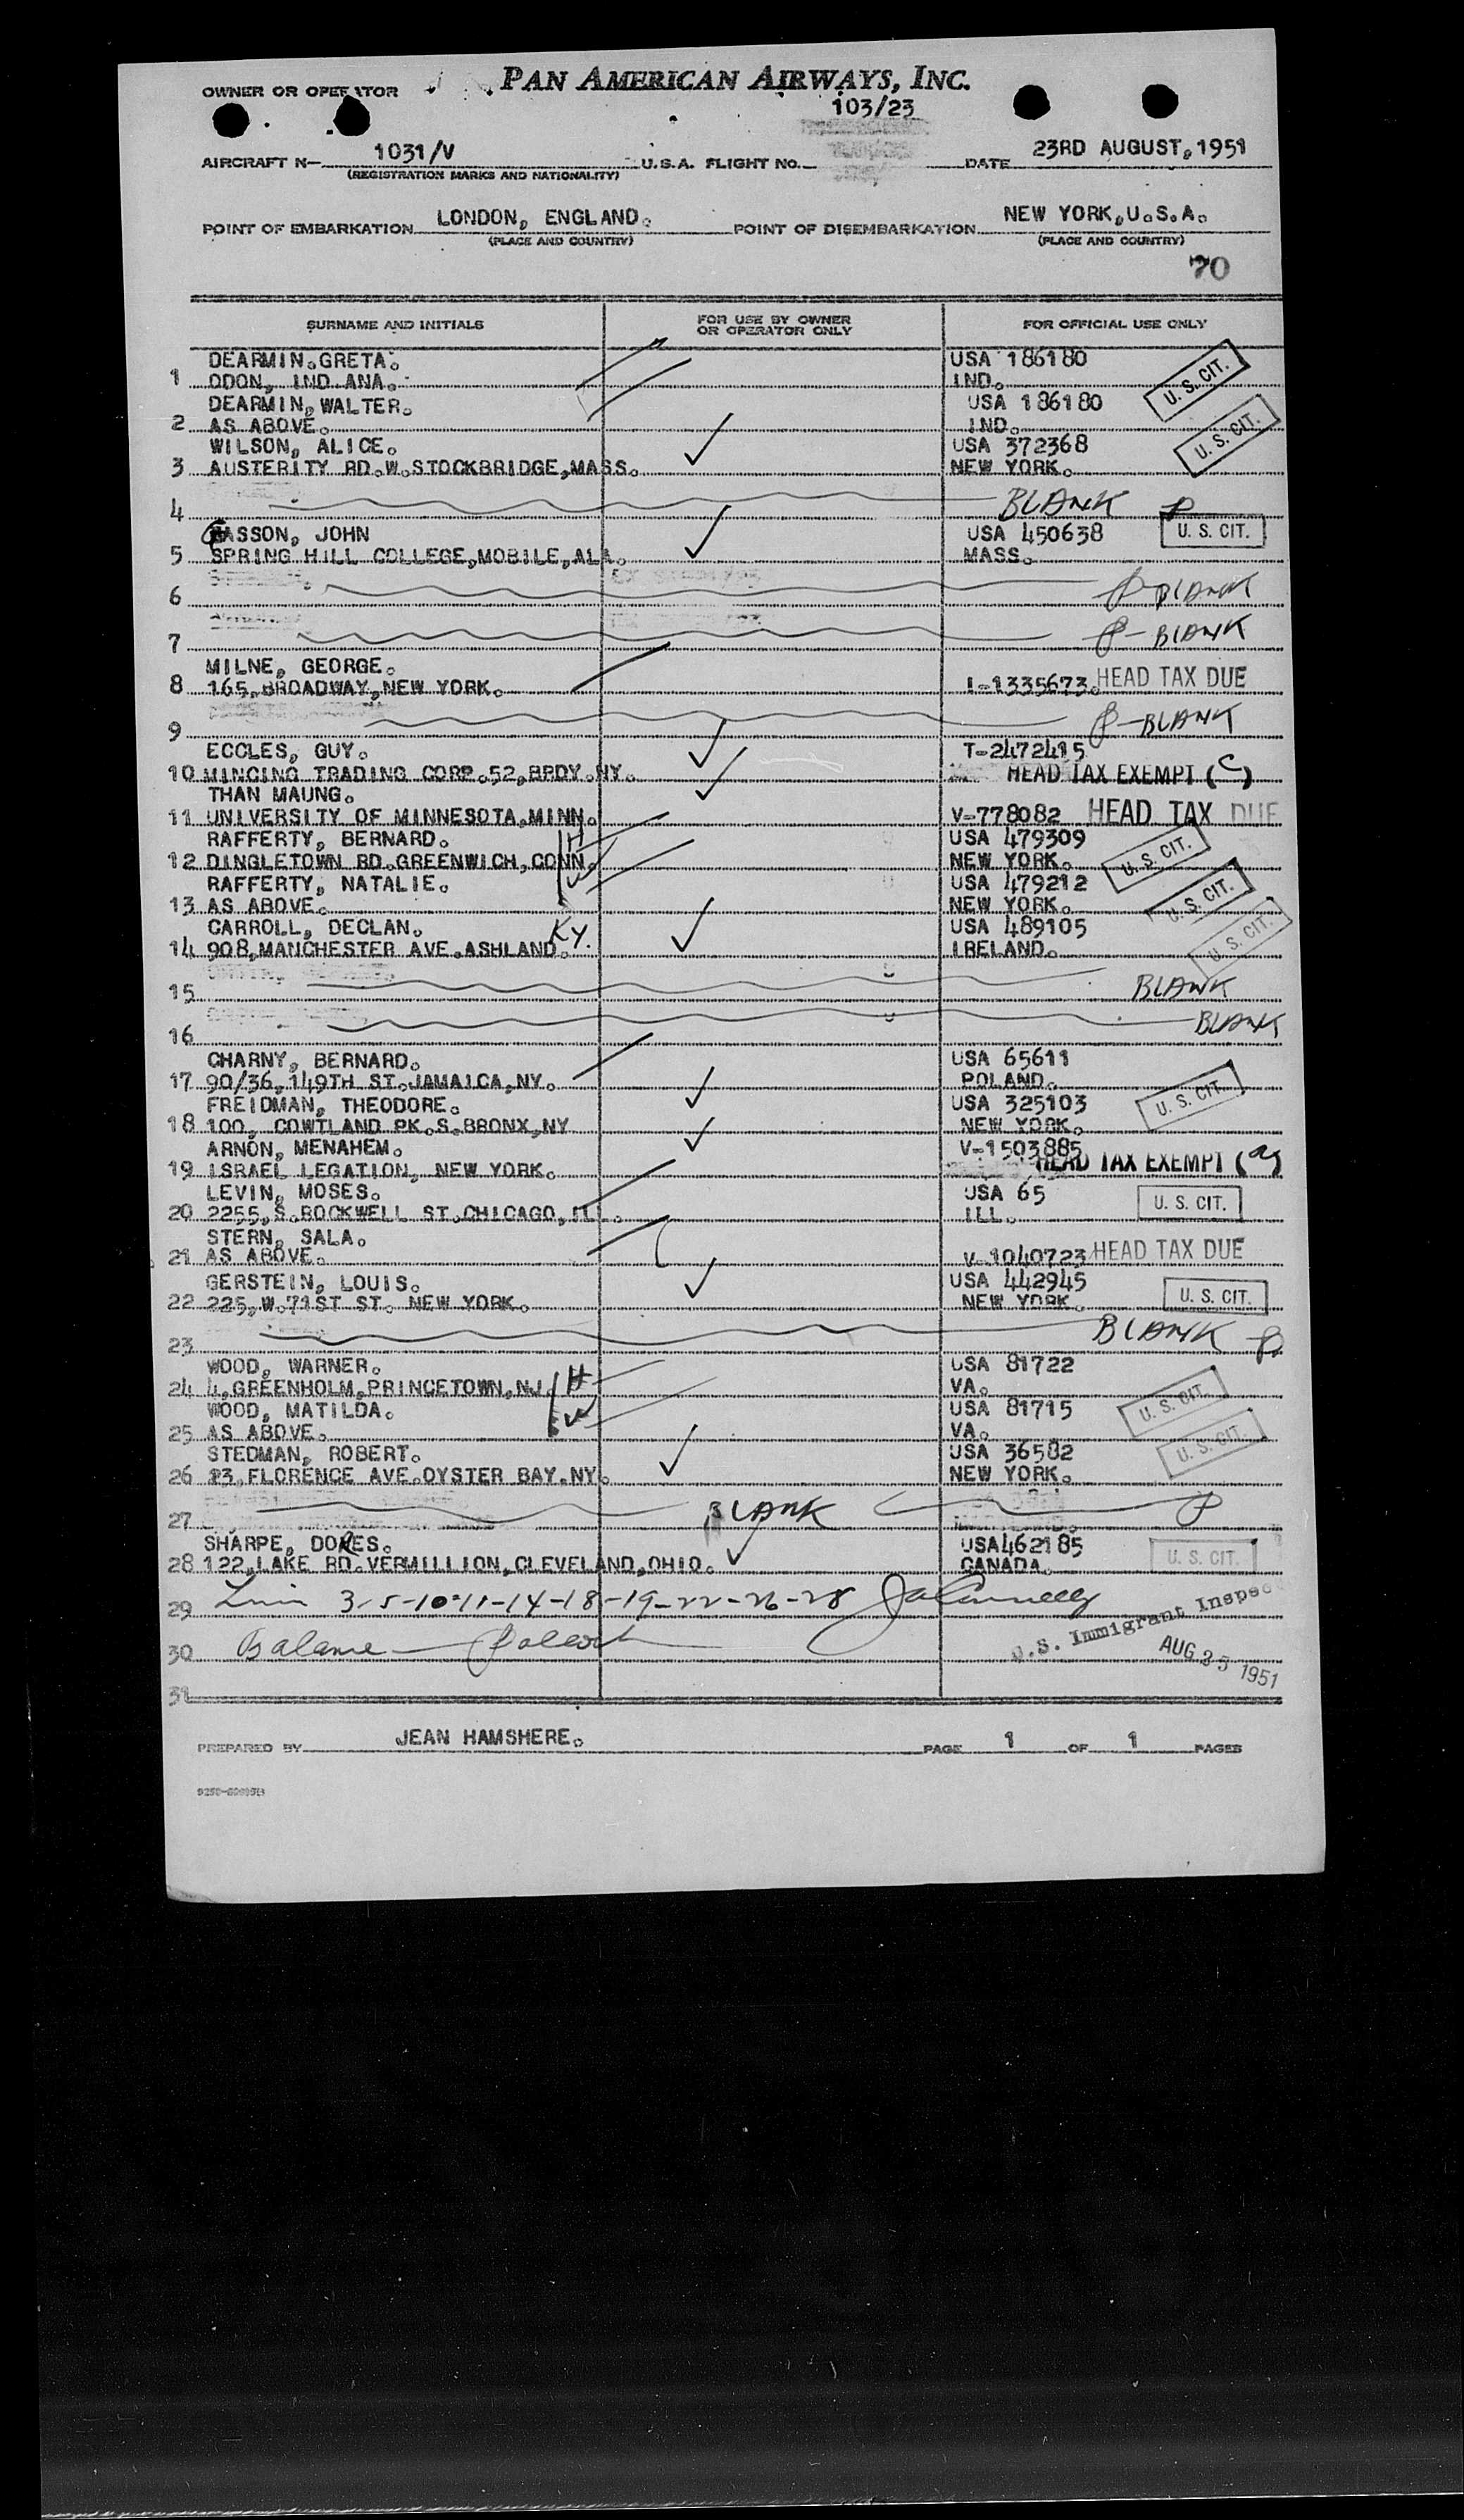 PAN AMERICAN AIRWAYS, INC.
OWNER OR OPERATOR
103/23
AIRCRAFT N— 1031/V U.S.A. FLIGHT NO. DATE 23RD AUGUST, 1951
(REGISTRATION MARKS AND NATIONALITY)
POINT OF EMBARKATION LONDON, ENGLAND. POINT OF DISEMBARKATION NEW YORK,U.S.A.
(PLACE AND COUNTRY) (PLACE AND COUNTRY)
70
SURNAME AND INITIALS FOR USE BY OWNER OR OPERATOR ONLY FOR OFFICIAL USE ONLY
DEARMIN.GRETA. USA 186180
1 ODON, IND ANA. IND. U. S. CIT.
DEARMIN, WALTER. USA 186180
2 AS ABOVE. IND. U. S. CIT.
WILSON, ALICE. USA 372368
3 AUSTERITY RD.W.STOCKBRIDGE,MASS. NEW YORK.
4 BLANK
GASSON, JOHN USA 450638 U. S. CIT.
5 SPRING HILL COLLEGE,MOBILE,ALA. MASS.
6 BLANK
7 BLANK
MILNE, GEORGE.
8 165,BROADWAY,NEW YORK. I-1335673. HEAD TAX DUE
9 BLANK
ECCLES, GUY. T-2472415
10 MINCING TRADING CORP.52,BRDY.NY. HEAD TAX EXEMPT (C)
THAN MAUNG.
11 UNIVERSITY OF MINNESOTA,MINN. V-778082 HEAD TAX DUE
RAFFERTY, BERNARD. H USA 479309
12 DINGLETOWN RD.GREENWICH,CONN. NEW YORK. U. S. CIT.
RAFFERTY, NATALIE. W USA 479212
13 AS ABOVE. NEW YORK. U. S. CIT.
CARROLL, DECLAN. KY. USA 489105
14 908,MANCHESTER AVE.ASHLAND. IRELAND. U. S. CIT.
15 BLANK
16 BLANK
CHARNY, BERNARD. USA 65611
17 90/36,149TH ST.JAMAICA,NY. POLAND.
FREIDMAN, THEODORE. USA 325103 U. S. CIT.
18 100, COWTLAND PK.S.BRONX,NY NEW YORK.
ARNON, MENAHEM. V-1503885
19 ISRAEL LEGATION, NEW YORK. HEAD TAX EXEMPT (a)
LEVIN, MOSES. USA 65 U. S. CIT.
20 2255,S.ROCKWELL ST.CHICAGO,ILL. ILL.
STERN, SALA.
21 AS ABOVE. V-1040723 HEAD TAX DUE
GERSTEIN, LOUIS. USA 442945
22 225,W.71ST ST. NEW YORK. NEW YORK. U. S. CIT.
23 BLANK
WOOD, WARNER. H USA 81722
24 4,GREENHOLM,PRINCETOWN,NJ. VA. U. S. CIT.
WOOD, MATILDA. W USA 81715
25 AS ABOVE. VA. U. S. CIT.
STEDMAN, ROBERT. USA 36582
26 23,FLORENCE AVE.OYSTER BAY.NY. NEW YORK.
27 BLANK
SHARPE, DORES. USA462185
28 122,LAKE RD.VERMILLION,CLEVELAND,OHIO. CANADA. U. S. CIT.
29 3-5-10-11-14-18-19-22-26-28
U.S. Immigrant Inspec
30 Balance
AUG 25 1951
31
PREPARED BY JEAN HAMSHERE. PAGE 1 OF 1 PAGES